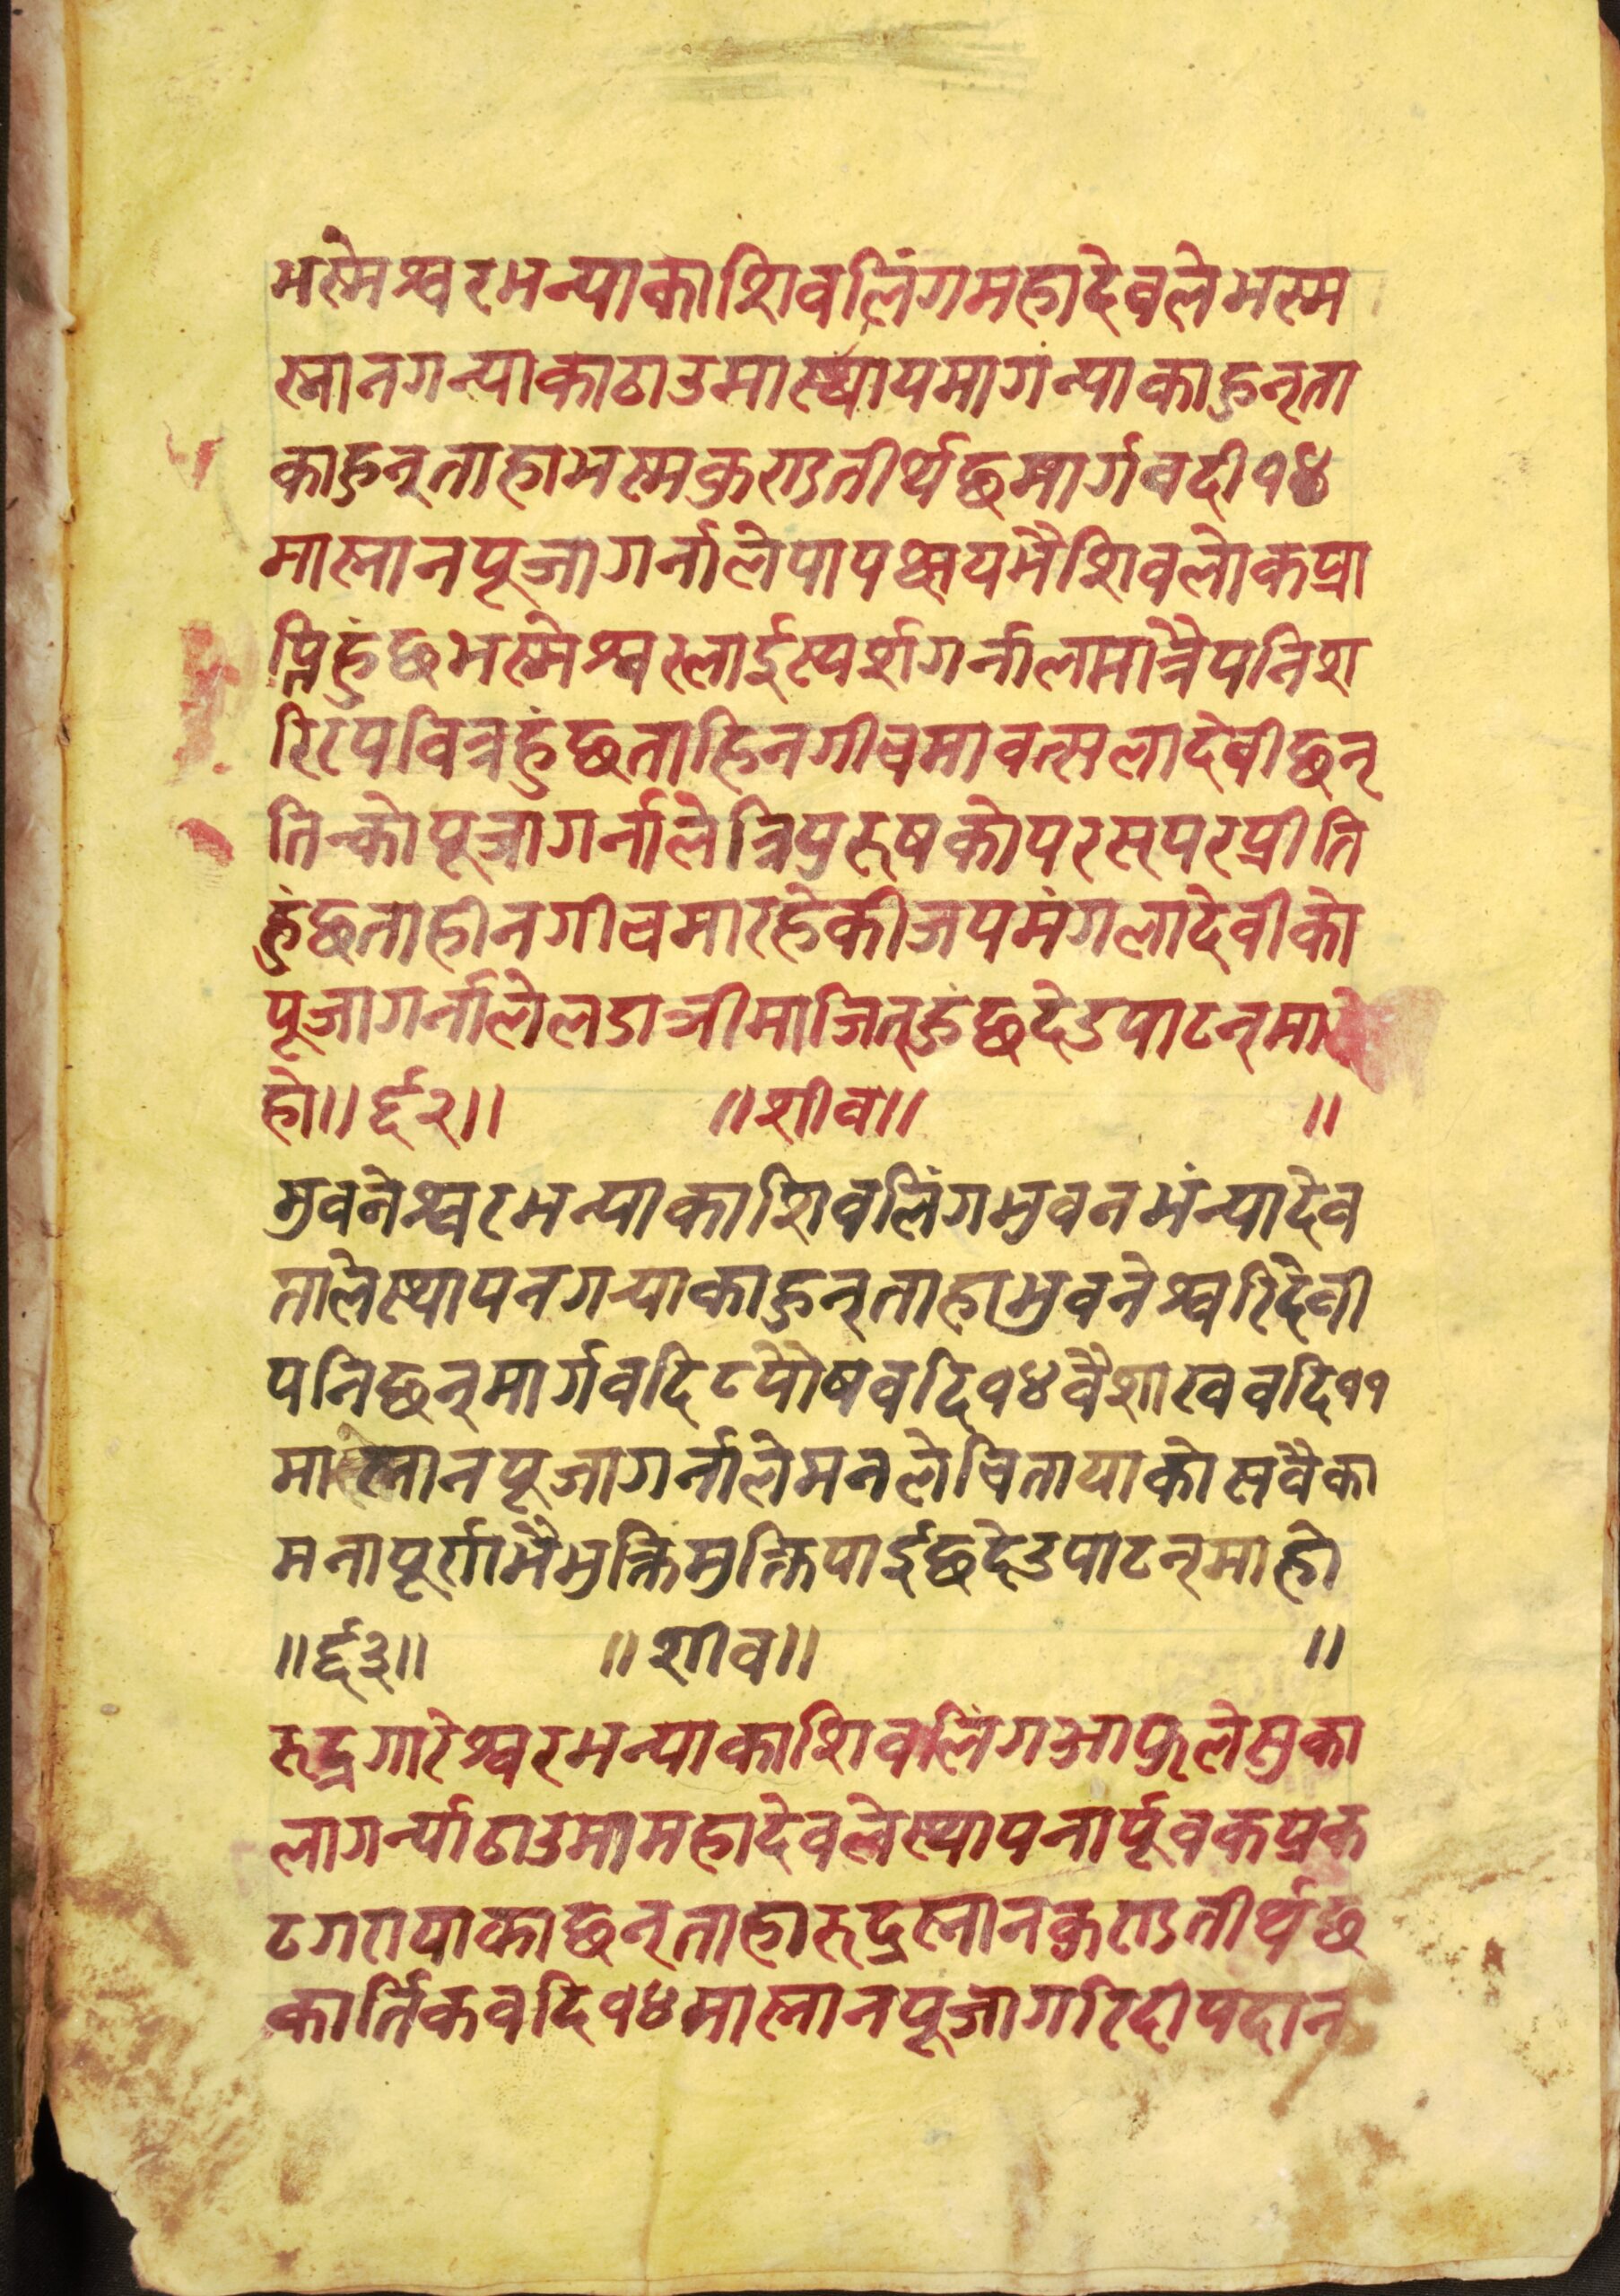 भस्मेश्वरभन्याकाशिवलिंगमहादेवलेभस्म
स्नानगन्याकाठाउमास्थायमागंन्याकाहुन्ता
काहुन्ताहाभस्मकुराडतीर्थछमार्गवदी१४
मास्नानपूजागर्नालेपापक्षयभैशिवलोकप्रा
प्तिहुंछभस्मेश्वरलाईस्पर्शगर्नालामात्रैपनिश
रिरपवित्रहुंछताहिनगीचमावत्सलादेवीछन्
तिन्कोपूजागर्नालेत्रिपुरूषकोपरसपरप्रीति
हुंछताहीनगीचमारहेकीजयमंगलादेवीको
पूजागर्नालेलडाञीमाजित्हुंछदेउपाटन्मा
हो॥६२॥ ॥शीव॥ ॥
भुवनेश्वरभन्याकाशिवलिंगभुवनभंन्यादेव
तालेस्थापनगर्‍याकाहुन्ताहाभुवनेश्वरिदेवी
पनिछन्मार्गवदि८पौषवदि१४वैशाखवदि११
मास्नानपूजागर्नालेमनलेचितायाकोसवैका
मनापूर्णभैभुक्तिमुक्तिपाईछदेउपाटन्माहो
॥६३॥ ॥शीव॥ ॥
रूद्रगारेश्वरभन्याकाशिवलिंगआफूलेसुका
लागर्न्याठाउमामहादेवलेस्थापनार्पूवकप्रक
टगरायाकाछन्ताहारूद्रस्नानकुराडतीर्थछ
कार्तिकवदि१४मास्नानपूजागरिदीपदान